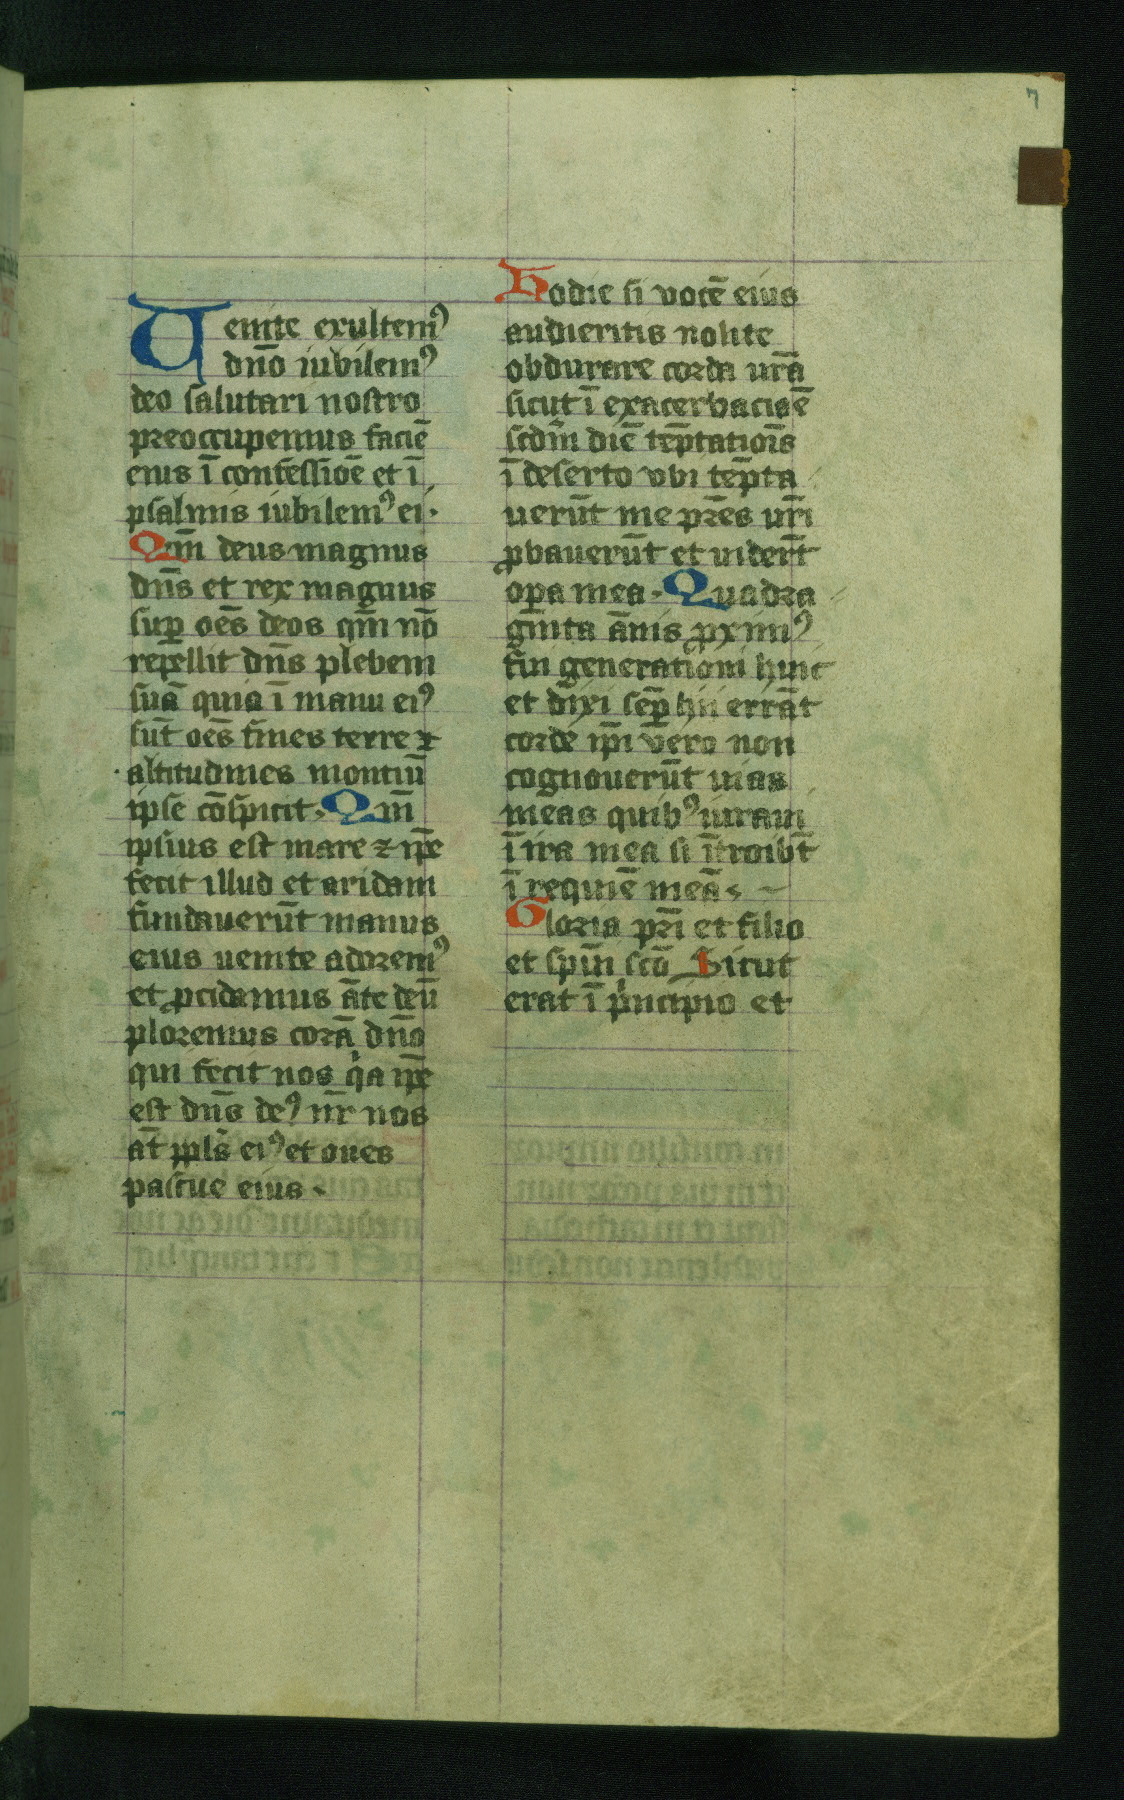 7
Uenite exultemꝰ
dn̄o iubilemꝰ
deo salutari nostro
preoccupemus faciē
eius ī confessiōe et ī
psalmis iubilemꝰ ei·
Qm̄ deus magnus
dn̄s et rex magnus
suꝑ oēs deos qm̄ nō
repellit dn̄s plebem
suā quia ī manu eiꝰ
sūt oēs fines terre ⁊
altitudines montiū
ipse cōspicit· Qm̄
ipsius est mare ⁊ ip̄e
fecit illud et aridam
fundauerūt manus
eius uenite adoremꝰ
et ꝓcidamus āte deū
ploremus corā dn̄o
qui fecit nos qͥa ip̄e
est dn̄s deꝰ nr̄ nos
at̄ ppl̄s eiꝰ et oues
pascue eius·
Hodie si vocē eius
audieritis nolite
obdurare corda ur̄a
sicut ī exacerbaciōē
scdm̄ diē tēptatiōis
ī deserto vbi tēpta
uerūt me pr̄es ur̄i
ꝓbauerūt et uider̄t
oꝑa mea· Quadra
gīnta ānis ꝓximꝰ
fui generationi huic
et dīxi semꝑ hii errāt
corde ip̄i vero non
cognouerūt uias
meas quibꝰ iuraui
ī ira mea si ītroibt̄
ī requiē meā
Gloria pr̄i et filio
et spūi scō Sicut
erat ī pͥncipio et